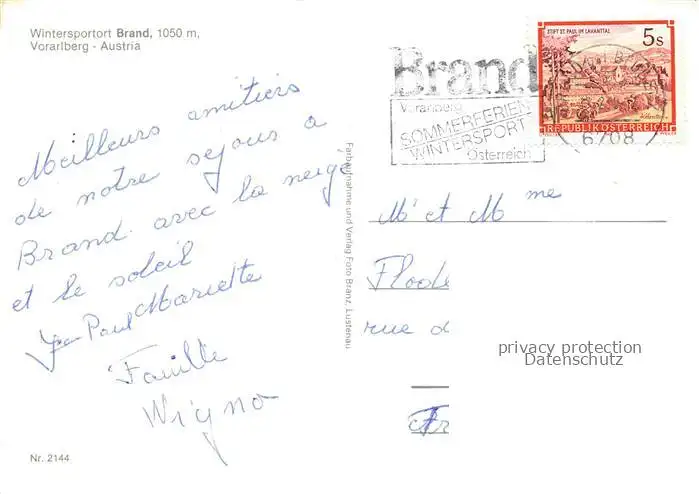 Wintersportort Brand, 1050 m,
Vorarlberg - Austria
Meilleurs amitiers
de notre sejours a
Brand avec la neige
et le soleil
Jean Paul Mariette
Famille
Wigno
Nr. 2144
Farbaufnahme und Verlag Foto Branz, Lustenau
Brand
Vorarlberg
SOMMERFERIEN
WINTERSPORT
Österreich
STIFT ST. PAUL IM LAVANTTAL
5 S
REPUBLIK ÖSTERREICH
6708
Mr et Mme
Flode
rue d
privacy protection
Datenschutz
Fr